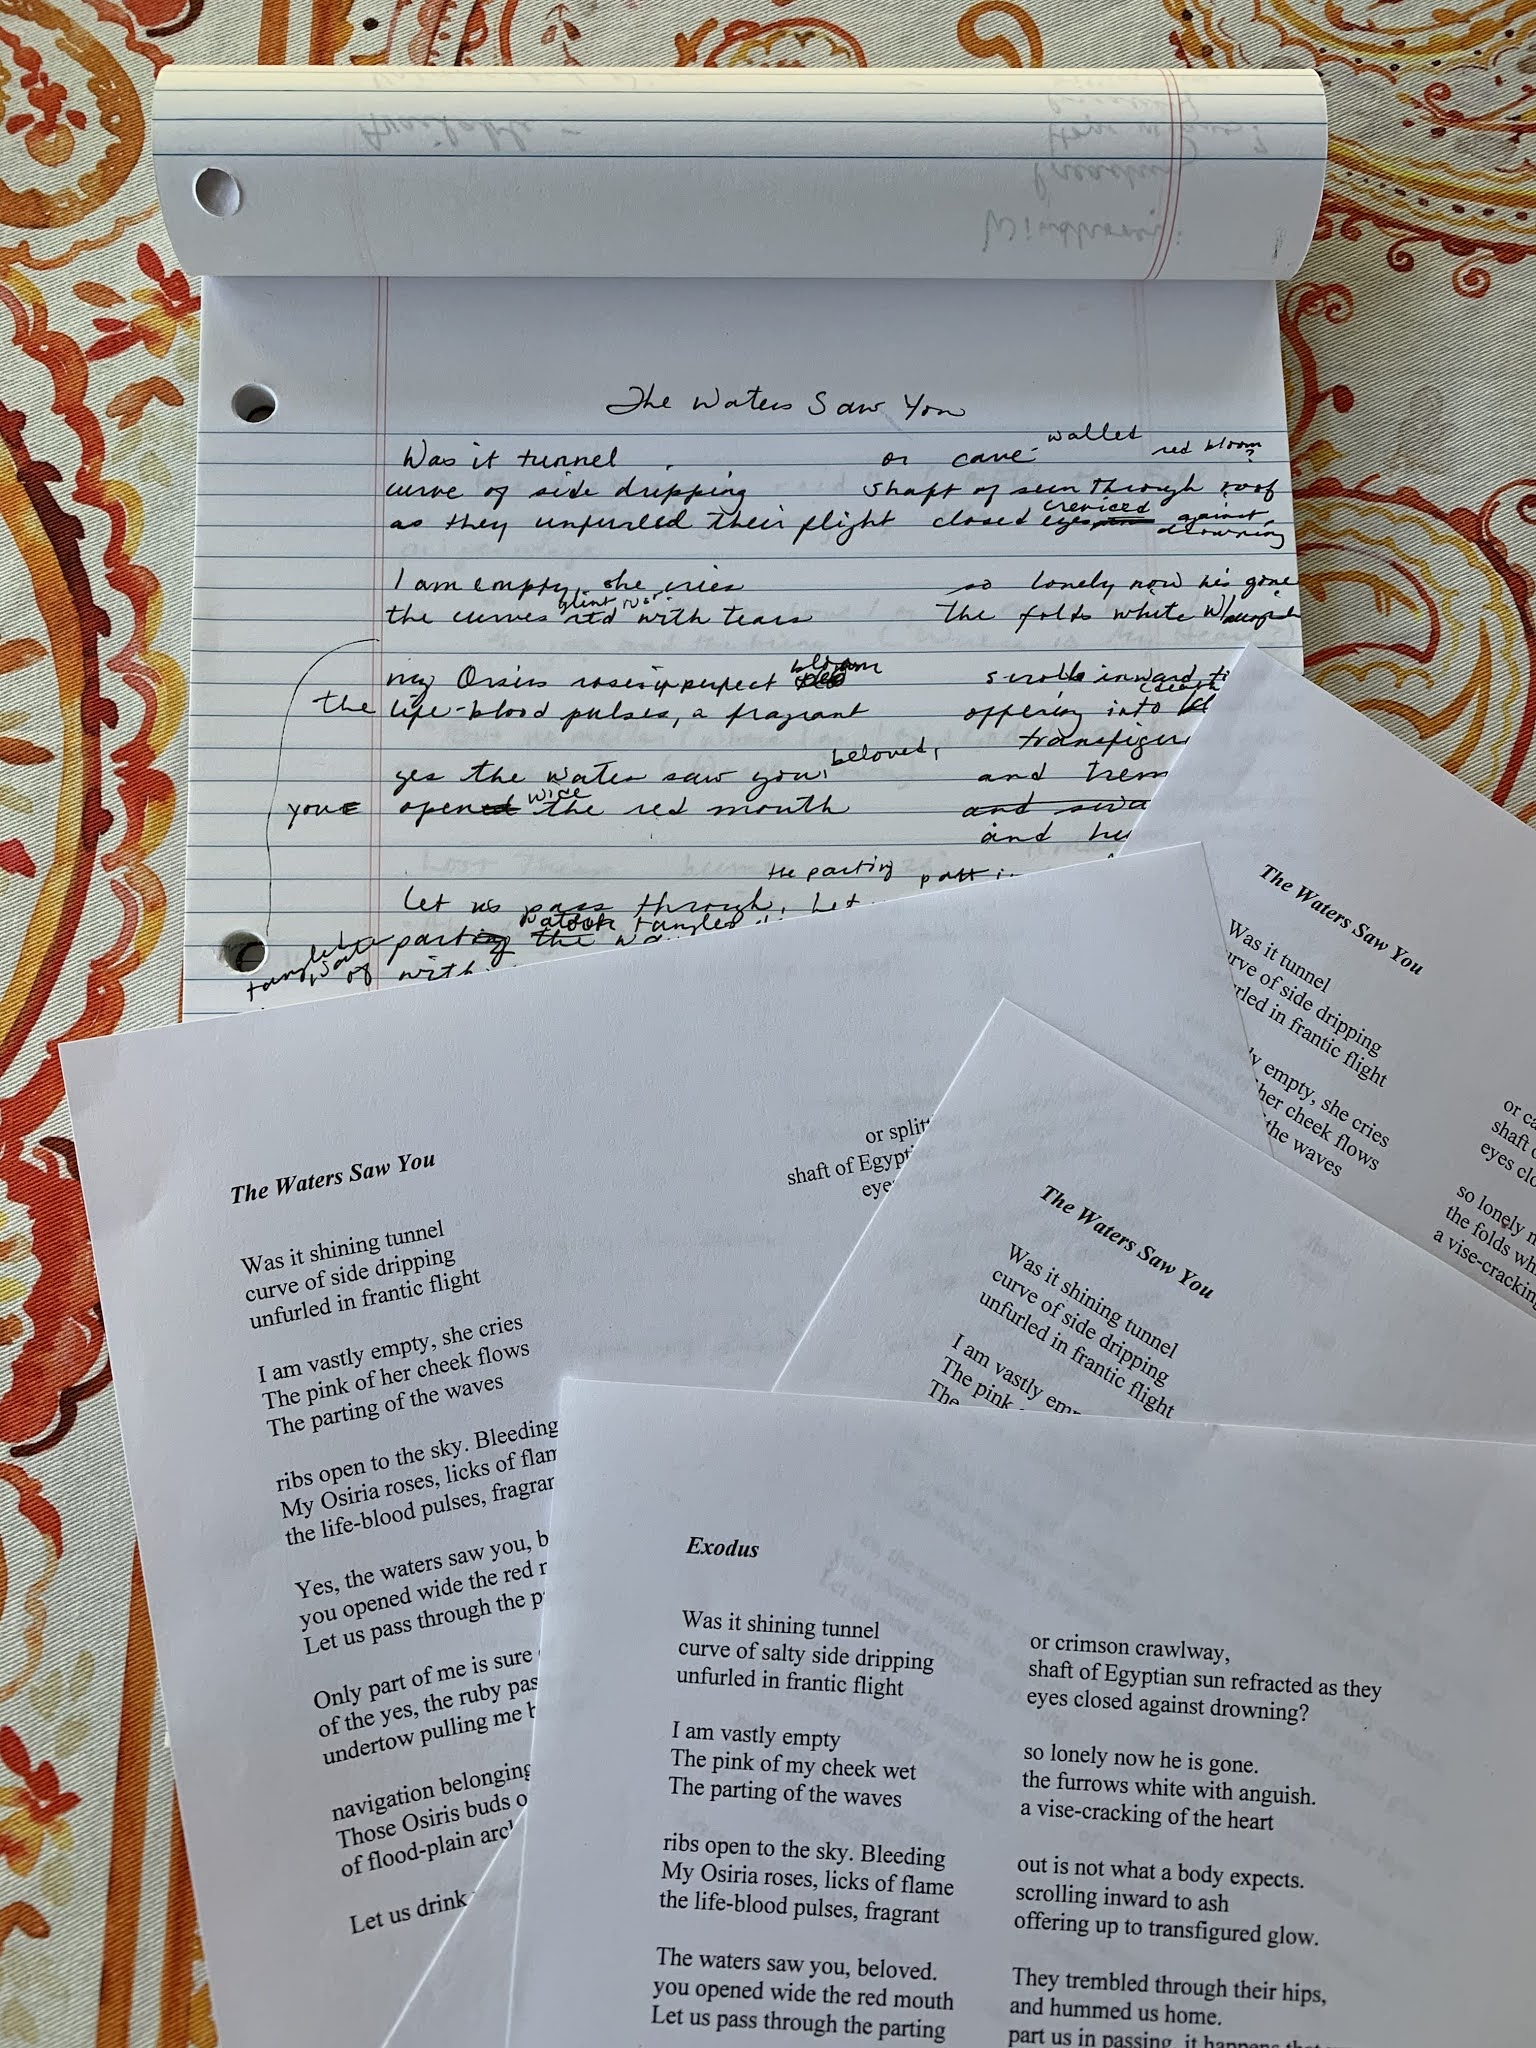 The Waters Saw You
wallet red bloom?
Was it tunnel or cave
curve of side dripping shaft of sun through roof
creviced
as they unfurled their flight closed eyes against drowning
I am empty, she cries so lonely now he's gone
glint
the curves with tears the folds white w/
bloom
my Orsiris roses perfect scrolls inward
the life-blood pulses, a fragrant offering into
beloved, transfigur
yes the water saw you, and trem
wide
you opened the red mouth and swa
and hu
the parting part
let us pass through, let
tangled
parting the
of with
The Waters Saw You
Was it tunnel
urve of side dripping
rled in frantic flight
y empty, she cries
her cheek flows
the waves
or ca
shaft o
eyes clo
so lonely n
the folds wh
a vise-cracking
The Waters Saw You
Was it shining tunnel
curve of side dripping
unfurled in frantic flight
I am vastly empty, she cries
The pink of her cheek flows
The parting of the waves
ribs open to the sky. Bleeding
My Osiria roses, licks of flam
the life-blood pulses, fragran
Yes, the waters saw you, b
you opened wide the red m
Let us pass through the p
Only part of me is sure
of the yes, the ruby pas
undertow pulling me b
navigation belonging
Those Osiris buds o
of flood-plain arc
Let us drink
or splitt
shaft of Egypti
eye
The Waters Saw You
Was it shining tunnel
curve of side dripping
unfurled in frantic flight
I am vastly em
The pink
The
Exodus
Was it shining tunnel
curve of salty side dripping
unfurled in frantic flight
I am vastly empty
The pink of my cheek wet
The parting of the waves
ribs open to the sky. Bleeding
My Osiria roses, licks of flame
the life-blood pulses, fragrant
The waters saw you, beloved.
you opened wide the red mouth
Let us pass through the parting
or crimson crawlway,
shaft of Egyptian sun refracted as they
eyes closed against drowning?
so lonely now he is gone.
the furrows white with anguish.
a vise-cracking of the heart
out is not what a body expects.
scrolling inward to ash
offering up to transfigured glow.
They trembled through their hips,
and hummed us home.
part us in passing, it happens that